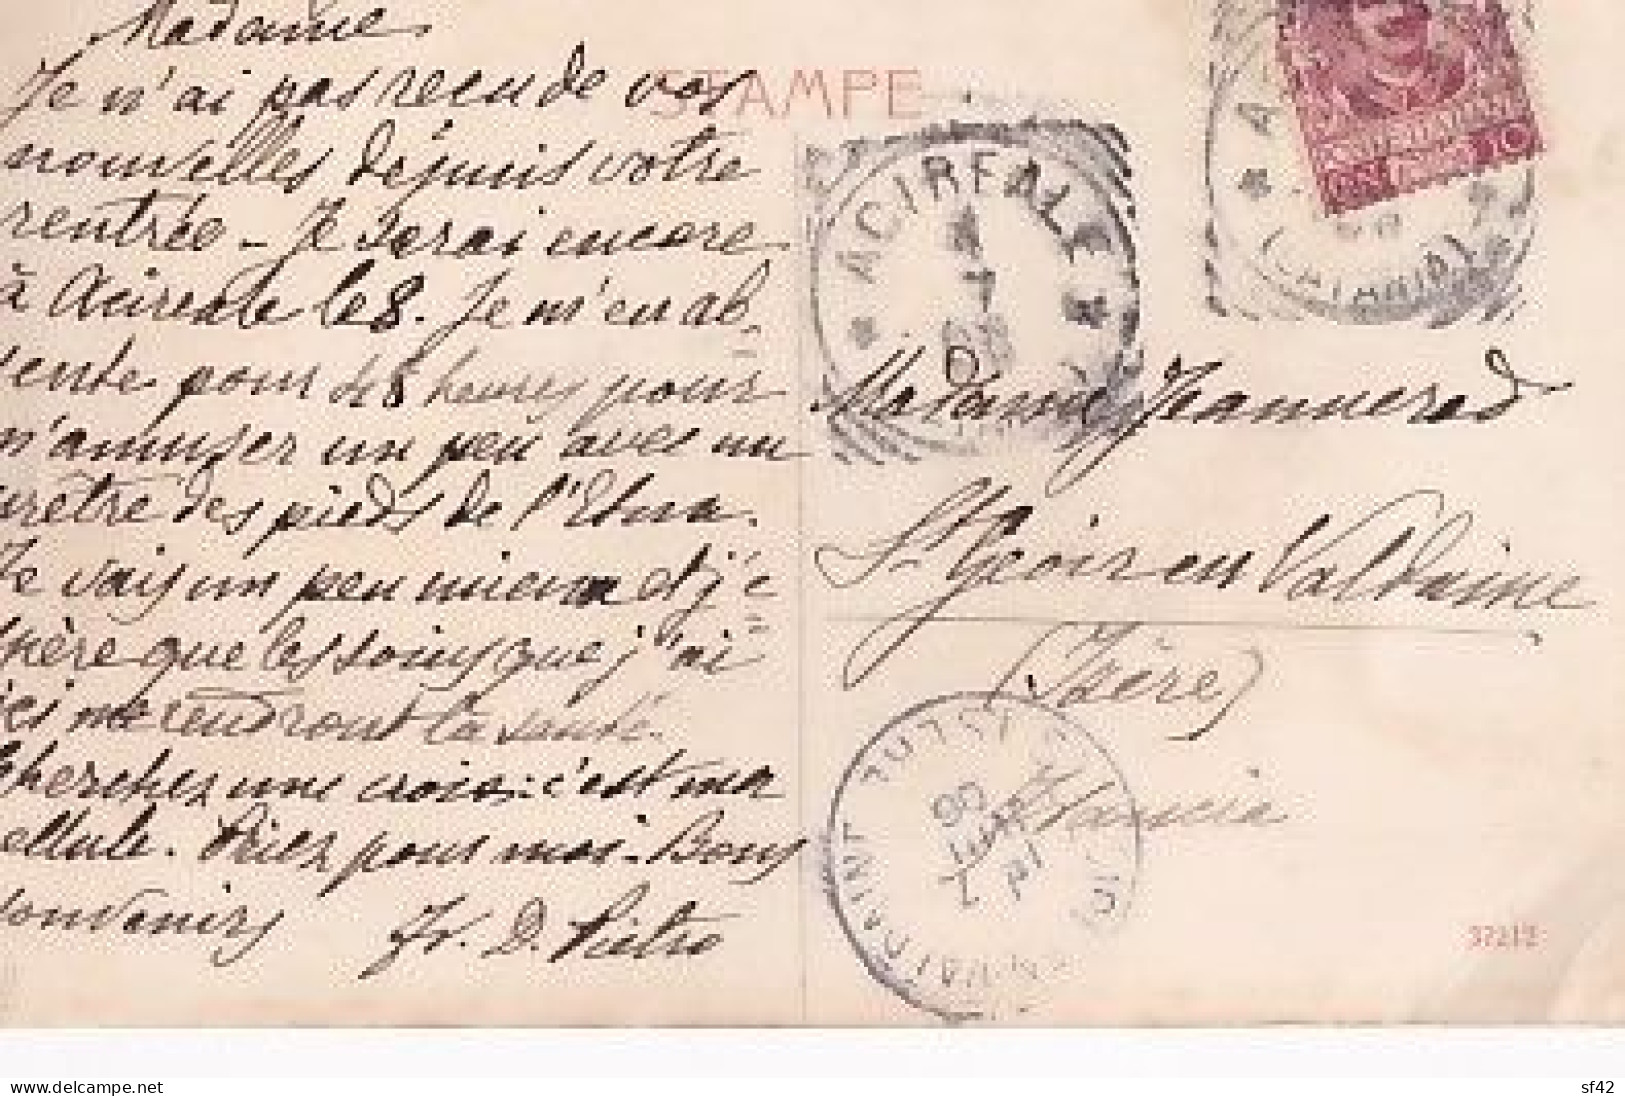 Madame
Je n'ai pas reçu de vos
nouvelles depuis votre
rentrée - Je serai encore
à Acireale le 8. Je m'en ab-
sente pour 48 heures pour
m'amuser un peu avec un
prêtre des pieds de l'Etna.
Je vais un peu mieux et j'es-
père que les soins que j'ai
ici me rendront la santé.
Cherchez une croix: c'est ma
cellule. Priez pour moi. Bons
souvenirs Fr. D. Pietro
STAMPE
ACIREALE
10
(CATANIA)
Madame Jeannerod
St Geoir en Valdaine
(Isère)
Francia
37212
www.delcampe.net
sf42